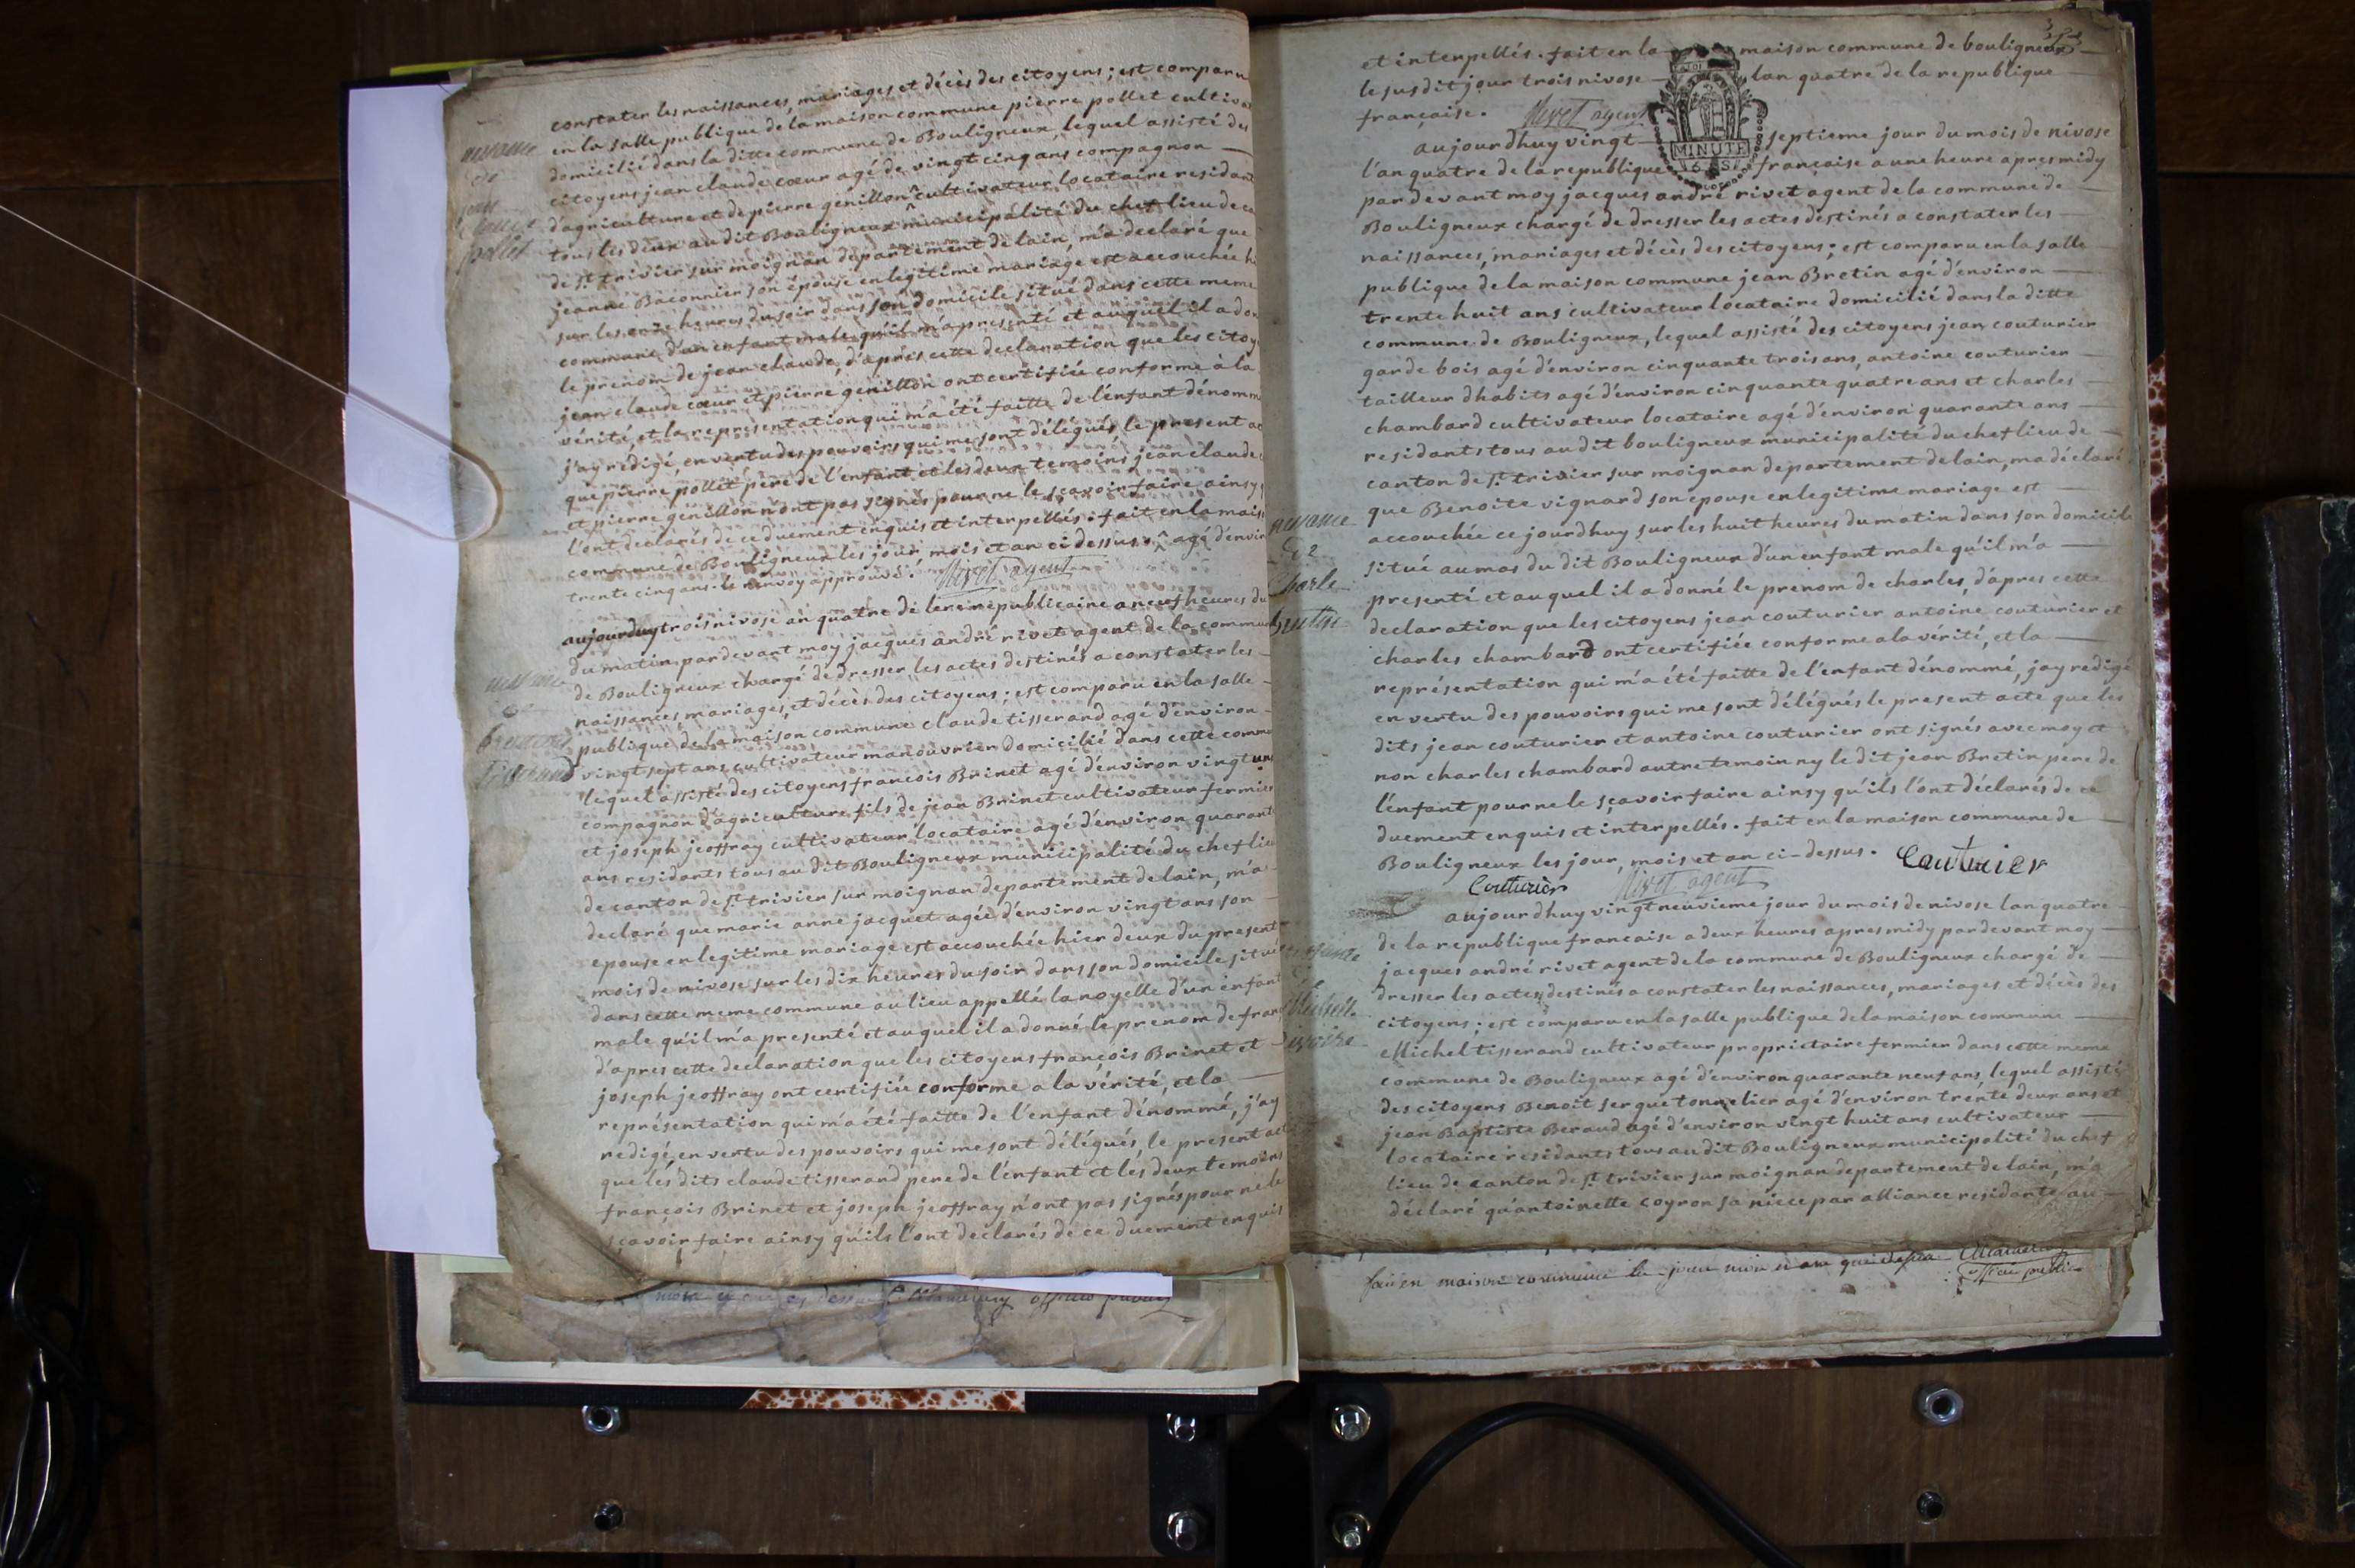 constater les naissances, mariages et décès des citoyens; est comparu
en la salle publique de la maison commune pierre pollet cultiva
domicilié dans la ditte commune de Bouligneux, lequel assisté des
citoyens jean claude cœur agé de vingt cinq ans compagnon
d'agriculture et de pierre genillon cultivateur locataire residant
tous les deux au dit Bouligneux municipalité du chef lieu de ca
de st. trivier sur moignan département de lain, m'a declaré que
jeanne Baconnier son épouse en legitime mariage est accouchée hi
sur les onze heures du soir dans son domicile situé dans cette meme
commune d'un enfant male qu'il m'a presenté et auquel il a don
le prenom de jean claude, d'après cette declaration que les citoy
jean claude cœur et pierre genillon ont certifiée conforme à la
vérité, et la representation qui m'a été faitte de l'enfant dénomm
j'ay rédigé, en vertu des pouvoirs qui me sont délégués, le present ac
que pierre pollet père de l'enfant et les deux temoins jean claude
et pierre genillon n'ont pas signés pour ne le sçavoir faire ainsy
l'ont declarés de ce duement enquis et interpellés. fait en la mais
commune de Bouligneux les jour mois et an ci dessus. ^ agé d'envir
trente cinq ans. le renvoy approuvé. Rivet agent
aujourduy trois nivose an quatre de lere republicaine a neuf heures du
du matin, par devant moy jacques andré rivet agent de la commun
de Bouligneux chargé de dresser les actes destinés a constater les
naissances, mariages, et décès des citoyens; est comparu en la salle
publique de la maison commune claude tisserand agé d'environ
vingt sept ans cultivateur manouvrier domicilié dans cette commu
lequel assisté des citoyens francois Brinet agé d'environ vingt un
compagnon d'agriculture fils de jean Brinet cultivateur fermier
et joseph jeoffray cultivateur locataire agé d'environ quarante
ans residants tous au dit Bouligneux municipalité du chef lieu
de canton de st. trivier sur moignan departement de lain, m'a
declaré que marie anne jacquet agée d'environ vingt ans son
epouse en legitime mariage est accouchée hier deux du present
mois de nivose sur les dix heures du soir dans son domicile situé
dans cette meme commune au lieu appellé la noyelle d'un enfant
male qu'il m'a presenté et auquel il a donné le prenom de fran
d'apres cette declaration que les citoyens françois Brinet et
joseph jeoffray ont certifiée conforme a la vérité, et la
représentation qui m'a été faitte de l'enfant dénommé, j'ay
redigé, en vertu des pouvoirs qui me sont délégués, le present act
que les dits claude tisserand pere de l'enfant et les deux temoins
françois Brinet et joseph jeoffray n'ont pas signés pour ne le
sçavoir faire ainsy qu'ils l'ont declarés de ce duement enquis
et interpellés. fait en la maison commune de bouligneux
le susdit jour trois nivose lan quatre de la republique
française. Rivet agent
MINUTE
aujourdhuy vingt septieme jour du mois de nivose
l'an quatre de la republique française a une heure apres midy
par devant moy jacques andré rivet agent de la commune de
Bouligneux chargé de dresser les actes destinés a constater les
naissances, mariages et décès des citoyens; est comparu en la salle
publique de la maison commune jean Bretin agé d'environ
trente huit ans cultivateur locataire domicilié dans la ditte
commune de Bouligneux, lequel assisté des citoyens jean couturier
garde bois agé d'environ cinquante trois ans, antoine couturier
tailleur dhabits agé d'environ cinquante quatre ans et charles
chambard cultivateur locataire agé d'environ quarante ans
residants tous au dit bouligneux municipalité du chef lieu de
canton de st. trivier sur moignan departement de lain, ma déclaré
que Benoite vignard son epouse en legitime mariage est
naissance
de
Charle
bretin
accouchée ce jourdhuy sur les huit heures du matin dans son domicile
situé au mas du dit Bouligneux d'un enfant male qu'il m'a
presenté et au quel il a donné le prenom de charles, d'apres cette
declaration que les citoyens jean couturier antoine couturier et
charles chambard ont certifiée conforme a la vérité, et la
représentation qui m'a été faitte de l'enfant dénommé, jay redigé
en vertu des pouvoirs qui me sont délégués le present acte que les
dits jean couturier et antoine couturier ont signés avec moy et
non charles chambard autre temoin ny le dit jean Bretin pere de
l'enfant pour ne le sçavoir faire ainsy qu'ils l'ont déclarés de ce
duement enquis et interpellés. fait en la maison commune de
Bouligneux les jour, mois et an ci-dessus. Couturier
Couturier Rivet agent
aujourdhuy vingt neuvieme jour du mois de nivose lan quatre
de la republique francaise a deux heures apres midy par devant moy
jacques andré rivet agent de la commune de Bouligneux chargé de
dresser les actes destinés a constater les naissances, mariages et décès des
citoyens; est comparu en la salle publique de la maison commune
Michel tisserand cultivateur proprietaire fermier dans cette meme
commune de Bouligneux agé d'environ quarante neuf ans, lequel assisté
des citoyens Benoit serque tonnelier agé d'environ trente deux ans et
jean Baptiste Beraud agé d'environ vingt huit ans cultivateur
locataire residants tous au dit Bouligneux municipalité du chef
lieu de canton de st. trivier sur moignan departement de lain, m'a
déclaré qu'antoinette coyron sa niece par alliance residante au
fait en maison commune les jour mois et an que dessus
officié public